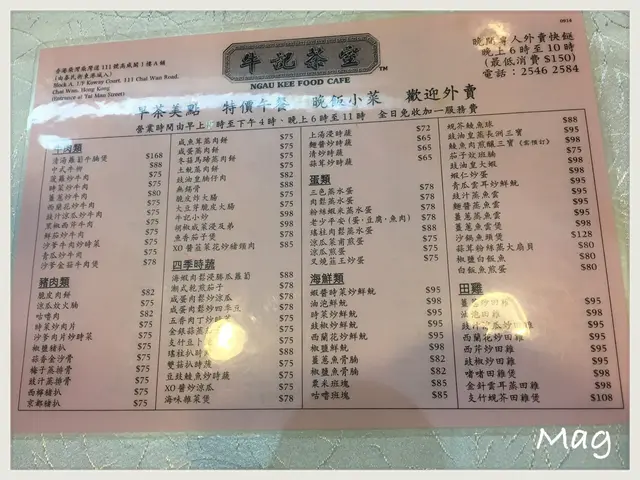 0818
香港柴灣柴灣道111號高威閣1樓A舖
Block A, 1/F Koway Court, 111 Chai Wan Road,
Chai Wan, Hong Kong
(Entrance at Tai Man Street)
牛記茶室
NGAU KEE FOOD CAFE
TM
晚間專人外賣快餸
晚上6時至10時
(最低消費 $150)
電話：2546 2584
早茶美點 特價午餐 晚飯小菜 歡迎外賣
營業時間由早上 時至下午4時、晚上6時至11時 全日免收加一服務費
牛肉類
清湯蘿蔔牛腩煲 $168
中式牛柳 $88
菠蘿炒牛肉 $75
時菜炒牛肉 $75
薑蔥炒牛肉 $80
西蘭花炒牛肉 $75
豉汁涼瓜炒牛肉 $75
黑椒西芹牛肉 $75
鮮茄炒牛肉 $75
沙爹牛肉炒時菜 $75
青瓜炒牛肉 $75
沙爹金菇牛肉煲 $78
豬肉類
脆皮肉餅 $82
涼瓜炆火腩 $75
咕嚕肉 $82
時菜炒肉片 $75
沙爹肉片炒時菜 $75
椒鹽豬扒 $75
蒜香金沙骨 $75
梅子蒸排骨 $75
豉汁蒸排骨 $75
西檸豬扒 $75
京都豬扒 $75
咸魚茸蒸肉餅 $75
咸蛋蒸肉餅 $75
冬菇馬蹄蒸肉餅 $75
土魷蒸肉餅 $75
豉油皇腩仔肉 $82
無錫骨 $88
脆皮炸大腸 $75
大豆芽脆皮大腸 $75
牛記小炒 $98
胡椒咸菜浸及弟 $98
魚香茄子煲 $78
XO醬韮菜花炒豬頸肉 $85
四季時蔬
海蝦肉鬆浸勝瓜蘿蔔 $88
潮式乾煎茄子 $78
咸蛋肉鬆炒涼瓜 $78
咸蛋肉鬆炒四季豆 $78
五香肉丁炒時 $75
金銀蒜蒸 $75
支竹豆卜 $75
瑤柱扒時 $88
雙菇扒時蔬 $75
豆豉鯪魚炒時蔬 $75
XO醬炒涼瓜 $75
海味雜菜煲 $78
上湯浸時蔬 $72
麵醬炒時蔬 $65
清炒時蔬 $65
蒜茸炒時蔬 $65
蛋類
三色蒸水蛋 $78
肉鬆蒸水蛋 $78
粉絲蝦米蒸水蛋 $78
老少平安(蛋·豆腐·魚肉) $78
瑤柱肉鬆蒸水蛋 $88
涼瓜菜甫煎蛋 $75
涼瓜煎蛋 $75
叉燒蒸王炒蛋 $75
海鮮類
蝦醬時菜炒鮮魷 $95
油泡鮮魷 $98
時菜炒鮮魷 $95
豉椒炒鮮魷 $95
西蘭花炒鮮魷 $95
椒鹽鮮魷 $98
薑蔥魚骨腩 $82
椒鹽魚骨腩 $82
粟米斑塊 $85
咕嚕斑塊 $85
規芥鯪魚球 $88
豉油皇蒸長洲三寶 $95
鯪魚肉煎釀三寶 (需預訂) $98
茄子炆斑腩 $75
豉油皇大蝦 $98
蝦仁炒蛋 $98
青瓜雲耳炒鮮魷 $95
豉汁蒸魚雲 $95
麵醬蒸魚雲 $95
薑蔥蒸魚雲 $95
薑蔥魚雲煲 $98
沙鍋魚頭煲 $128
蒜茸粉絲蒸大扇貝 $80
椒鹽白飯魚 $80
白飯魚煎蛋 $80
田雞
薑蔥炒田雞 $95
油泡田雞 $98
豉汁涼瓜炒田雞 $95
西蘭花炒田雞 $95
西芹炒田雞 $95
豉椒炒田雞 $95
啫啫田雞煲 $98
金針雲耳蒸田雞 $98
支竹規芥田雞煲 $108
Mag